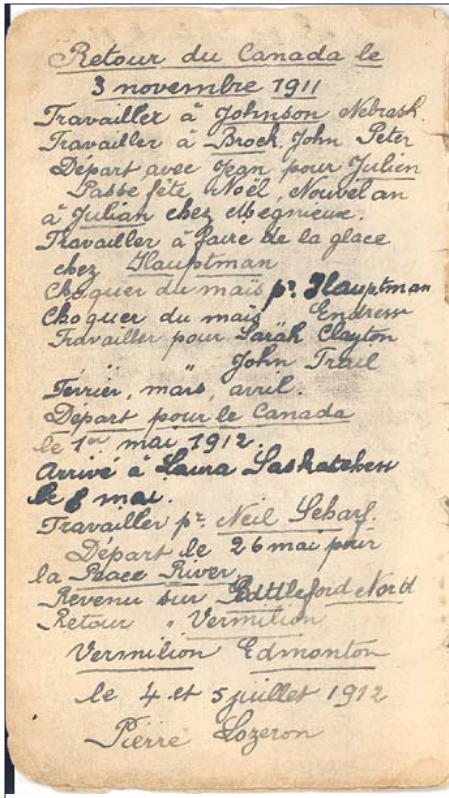 Retour du Canada le
3 novembre 1911
Travailler à Johnson Nebrash.
Travailler à Brock, John Peter
Départ avec Jean pour Julien
Passe fête Noël, Nouvel an
à Julian chez Mégnieux.
Travailler à faire de la glace
chez Hauptman
Choquer du maïs pr. Hauptman
Choquer du maïs Endress
Travailler pour Sarah Clayton
" " John Trail
Février, mars, avril.
Départ pour le Canada
le 1er mai 1912.
Arrivé à Laura Saskatchen
le 8 mai.
Travailler pr. Neil Scharf.
Départ le 26 mai pour
la Peace River.
Revenu sur Battleford Nord
Retour " Vermilion
Vermilion Edmonton
le 4 et 5 juillet 1912
Pierre Lozeron